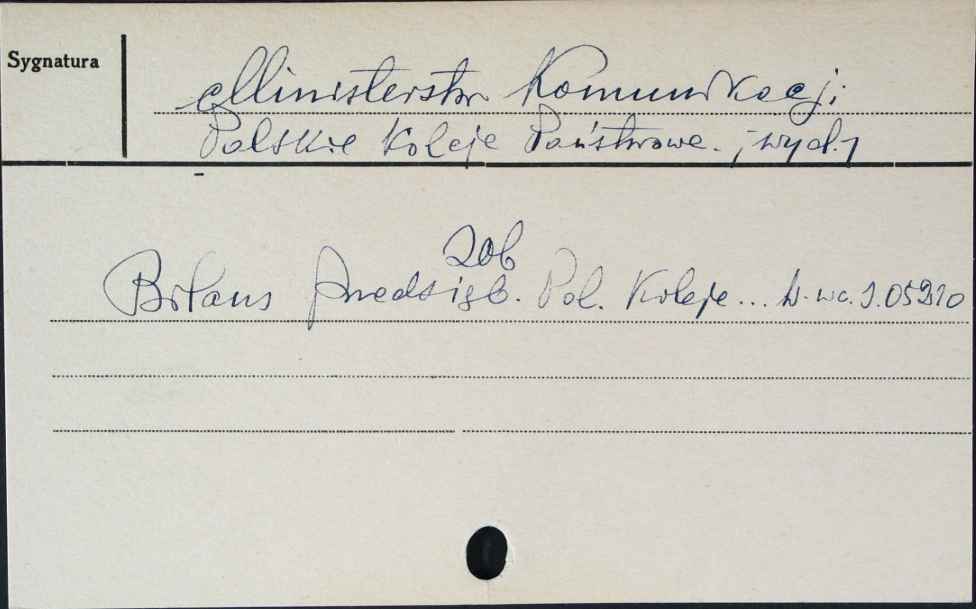 Sygnatura
Ministerstw Komunikacji
Polskie Koleje Państwowe. [wyd.]
zob
Bilans Przedsięb. Pol. Koleje...